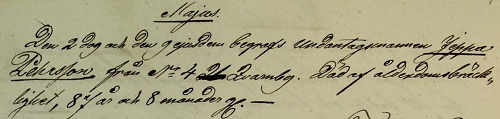 Majus.
Den 2 dog och den 9 ejusdem begrofs Undantagsmannen Jeppa
Pehrsson från No 4 Qvarnby. Död af ålderdomsbräck-
lighet, 87 år och 8 månader g. —